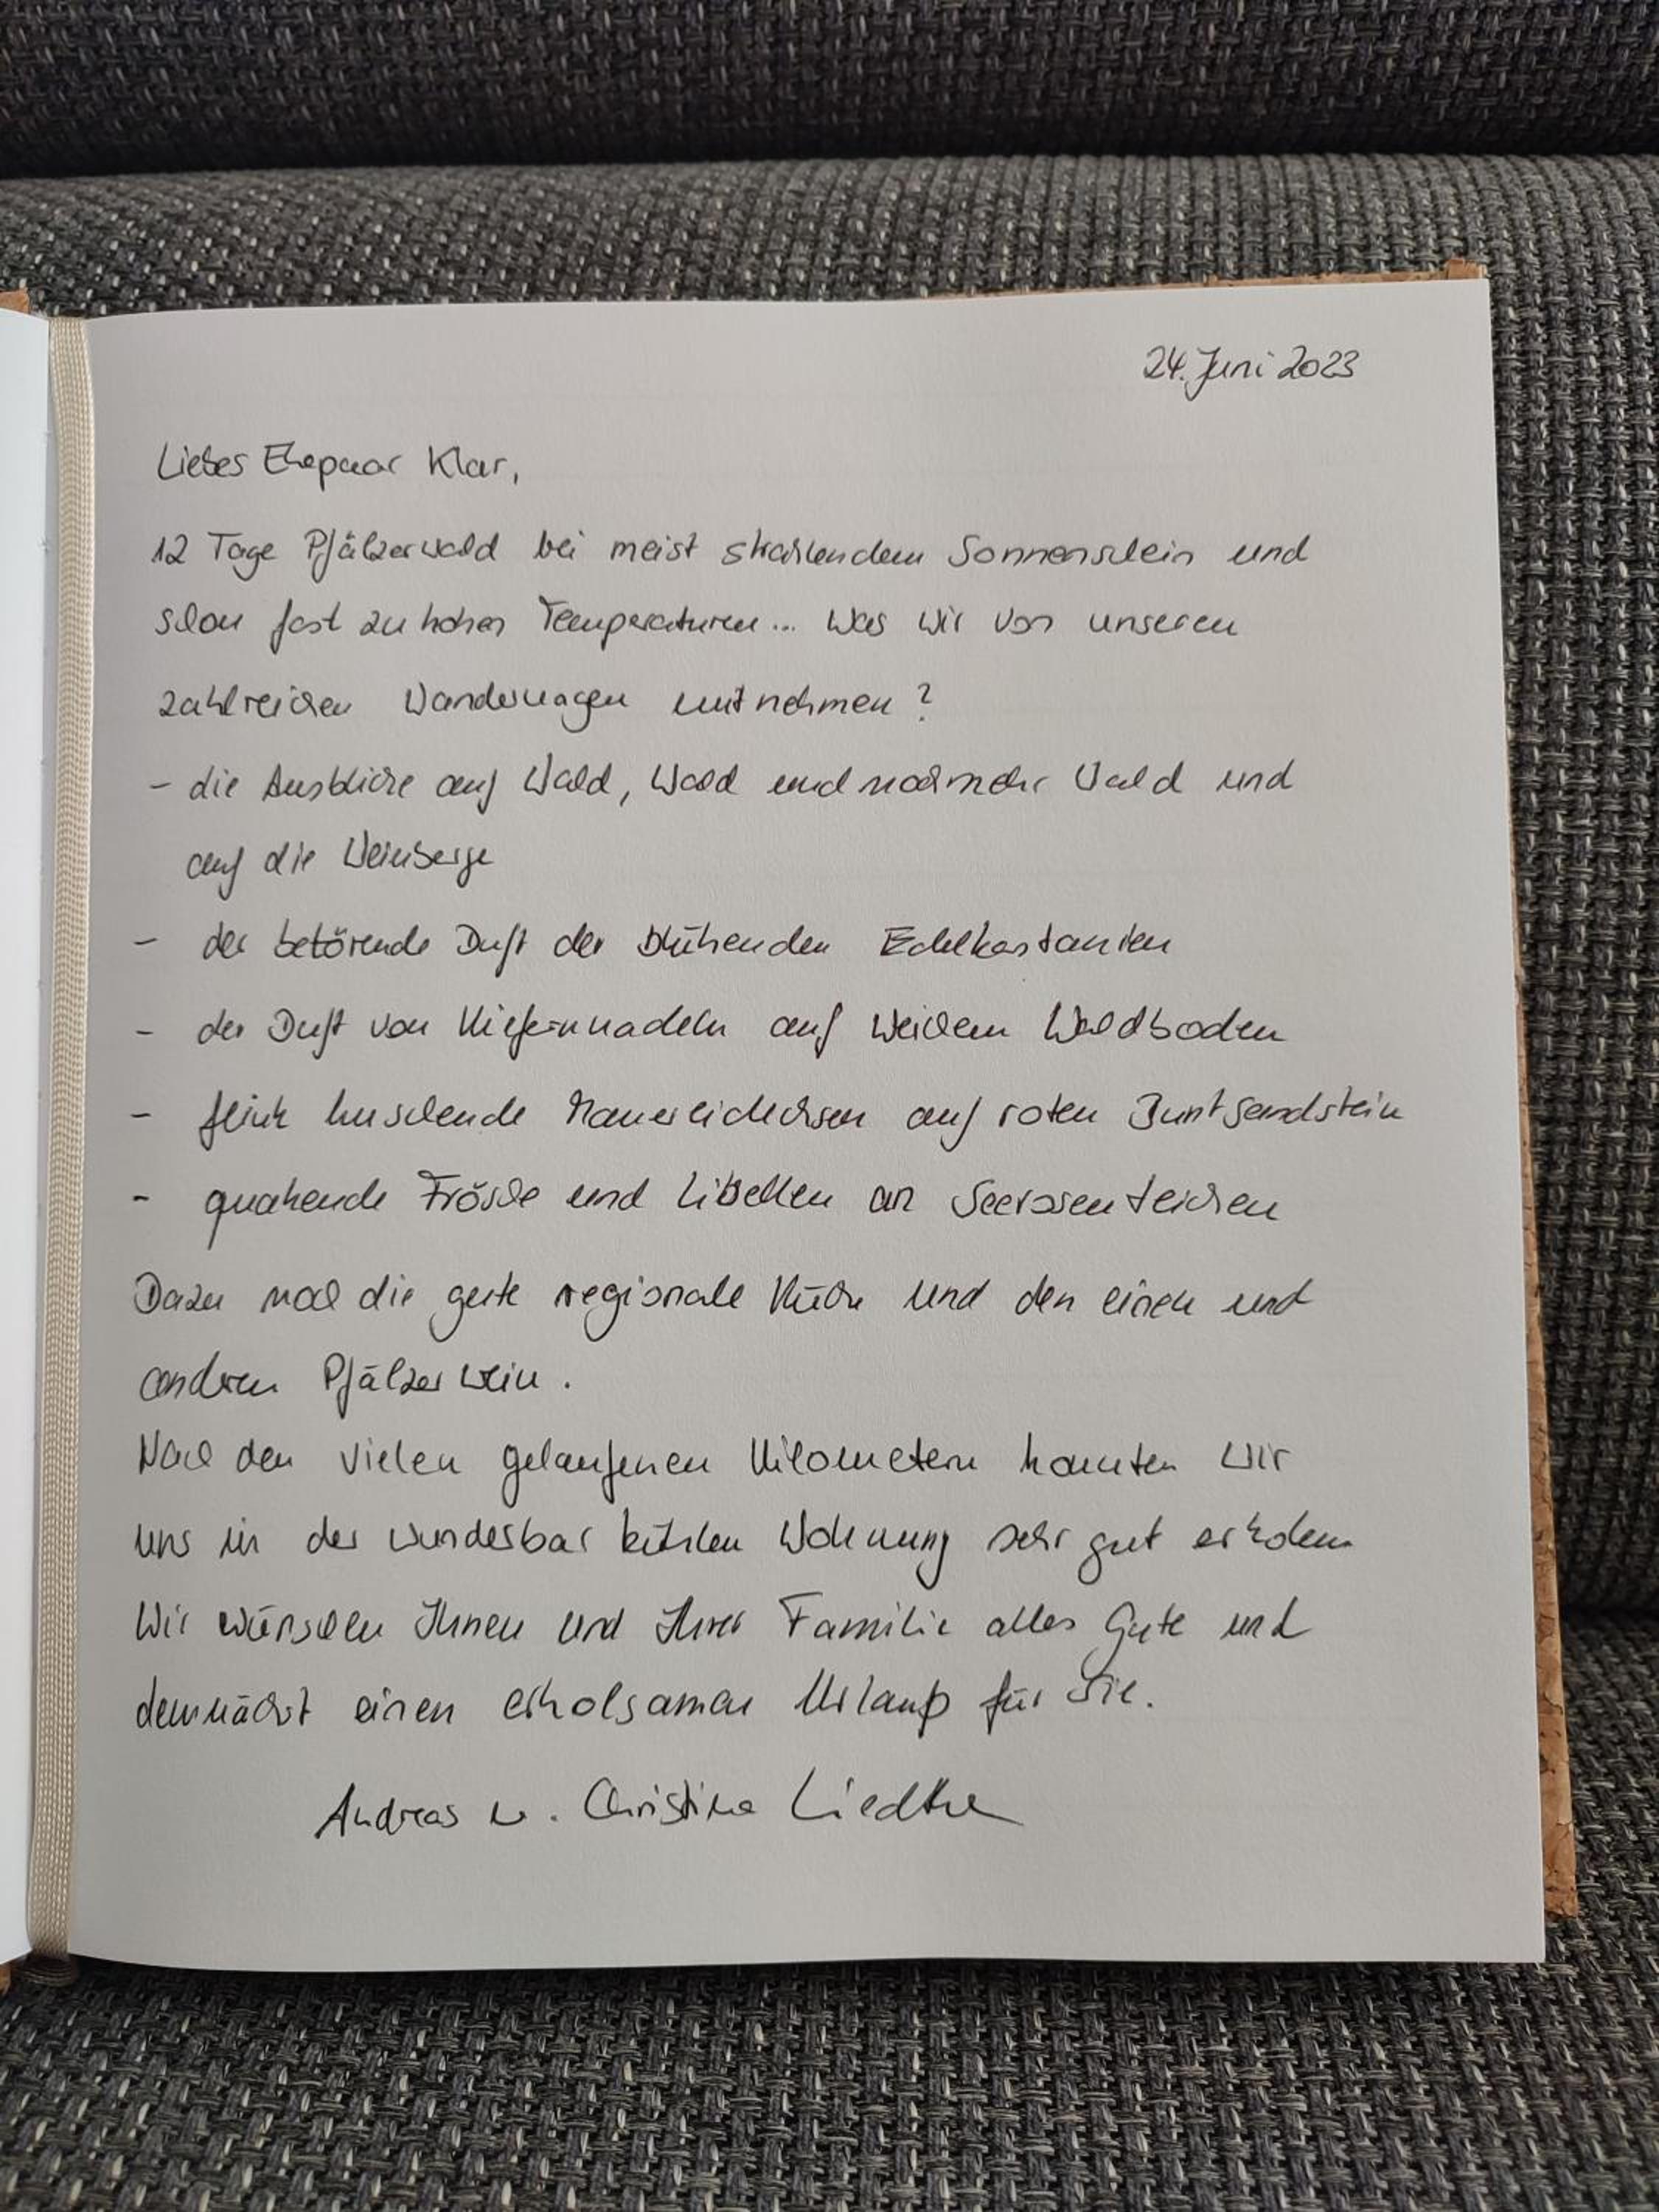 24. Juni 2023
Liebes Ehepaar Klar,
12 Tage Pfälzerwald bei meist strahlendem Sonnenschein und
schon fast zu hohen Temperaturen... Was wir von unseren
zahlreichen Wanderungen mitnehmen?
- die Ausblicke auf Wald, Wald und noch mehr Wald und
auf die Weinberge
- der betörende Duft der blühenden Edelkastanien
- der Duft von Kiefernnadeln auf weichem Waldboden
- flink huschende Mauereidechsen auf roten Buntsandstein
- quakende Frösche und Libellen an Seerosenteichen
Dazu noch die gute regionale Küche und den einen und
anderen Pfälzer Wein.
Nach den vielen gelaufenen Kilometern konnten wir
uns in der wunderbar kühlen Wohnung sehr gut erholen.
Wir wünschen Ihnen und Ihrer Familie alles Gute und
demnächst einen erholsamen Urlaub für Sie.
Andreas u. Christina Liedtke